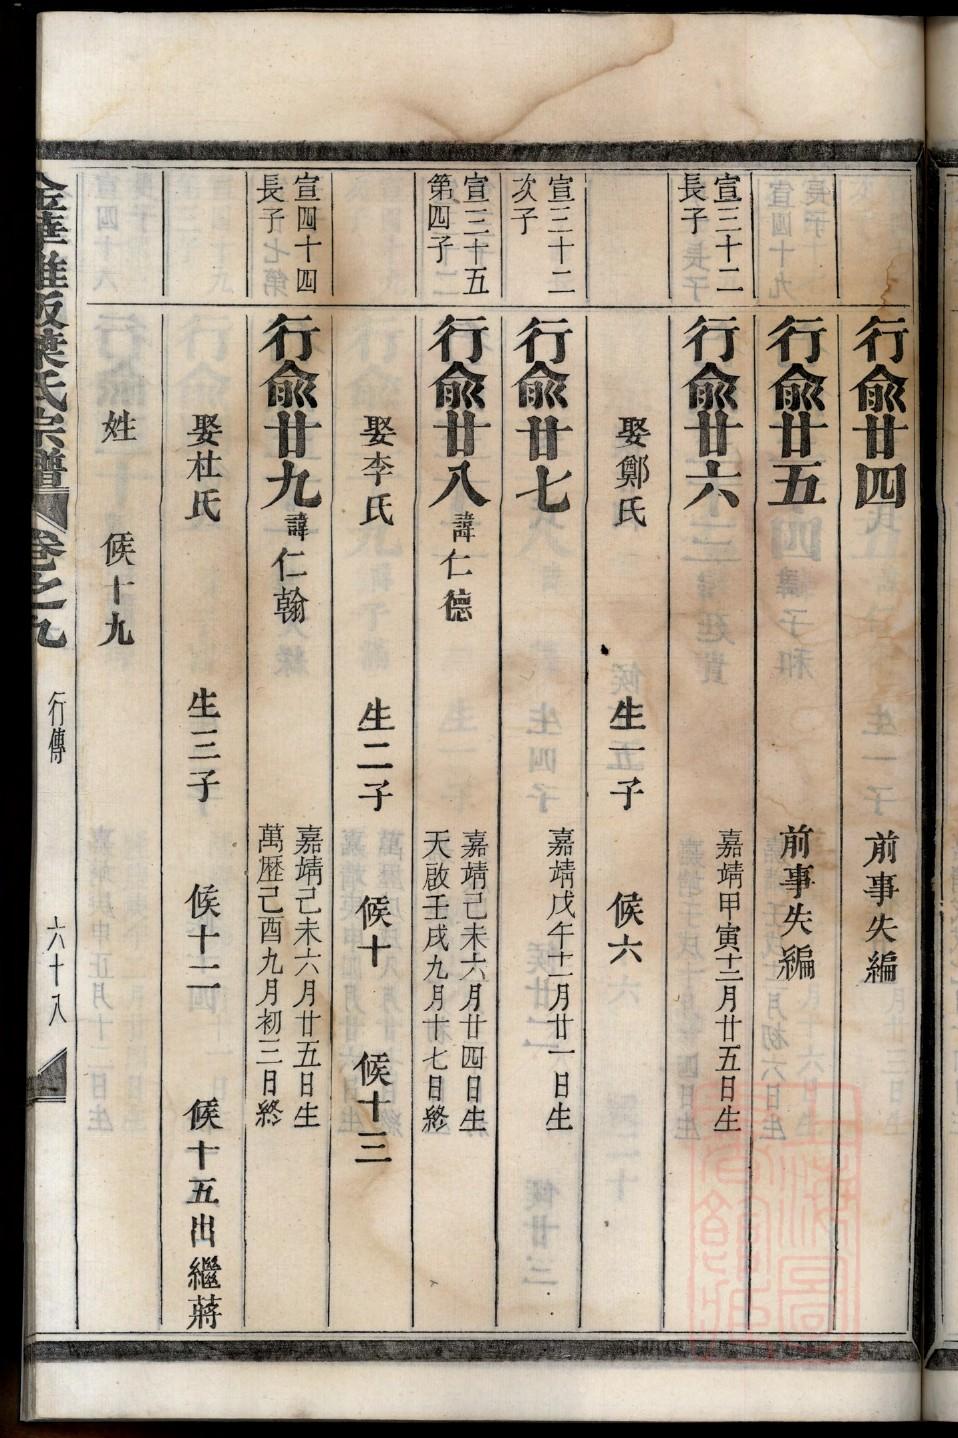 行俞廿四
前事失編
行俞廿五
前事失編
宣三十二
長子
行俞廿六
嘉靖甲寅十二月廿五日生
娶鄭氏
生一子
候六
宣三十二
次子
行俞廿七
嘉靖戊午十二月廿一日生
宣三十五
第四子
行俞廿八諱仁德
嘉靖己未六月廿四日生
天啟壬戌九月十七日終
娶李氏
生二子
候十
候十三
宣四十四
長子
行俞廿九諱仁翰
嘉靖己未六月廿五日生
萬歷己酉九月初三日終
娶杜氏
生三子
候十二
候十五出繼蔣
姓
候十九
葉氏宗譜
卷之九
行傳
六十八